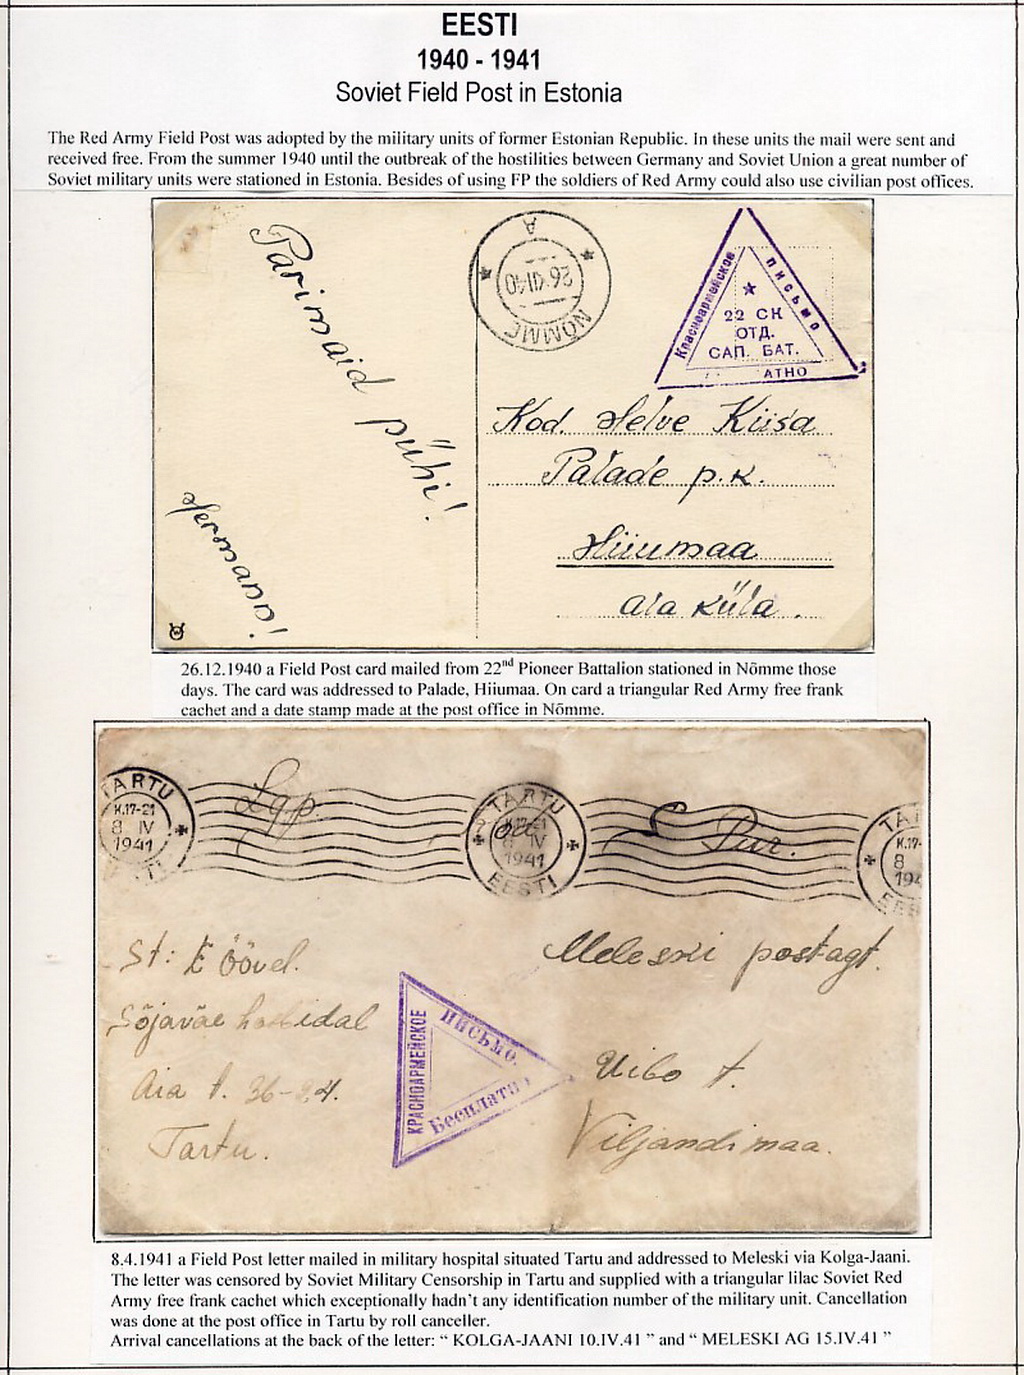 EESTI
1940 - 1941
Soviet Field Post in Estonia
The Red Army Field Post was adopted by the military units of former Estonian Republic. In these units the mail were sent and
received free. From the summer 1940 until the outbreak of the hostilities between Germany and Soviet Union a great number of
Soviet military units were stationed in Estonia. Besides of using FP the soldiers of Red Army could also use civilian post offices.
Parimaid pühi!
Hermann!
A
26 XII 40
NÕMME
Красноармейское
письмо
22 СК
ОТД.
САП. БАТ.
АТНО
Kod. Helve Kiisa
Palade p.k.
Hiiumaa
ala küla.
26.12.1940 a Field Post card mailed from 22nd Pioneer Battalion stationed in Nõmme those
days. The card was addressed to Palade, Hiiumaa. On card a triangular Red Army free frank
cachet and a date stamp made at the post office in Nõmme.
TARTU
K.17-21
8 IV
1941
TARTU
K.17-21
8 IV
1941
EESTI
K.17-
8
Lgp.
E Pur.
St: E Öövel.
Sõjaväe
Aia t. 36-
Tartu.
КРАСНОАРМЕЙСКОЕ
ПИСЬМО.
Бесплатн
Meleski postagt.
Uibo t.
Viljandimaa.
8.4.1941 a Field Post letter mailed in military hospital situated Tartu and addressed to Meleski via Kolga-Jaani.
The letter was censored by Soviet Military Censorship in Tartu and supplied with a triangular lilac Soviet Red
Army free frank cachet which exceptionally hadn't any identification number of the military unit. Cancellation
was done at the post office in Tartu by roll canceller.
Arrival cancellations at the back of the letter: “ KOLGA-JAANI 10.IV.41 ” and “ MELESKI AG 15.IV.41 ”